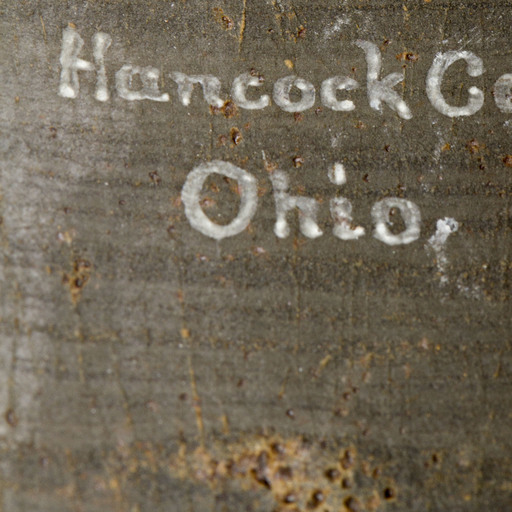 Hancock Co
Ohio,